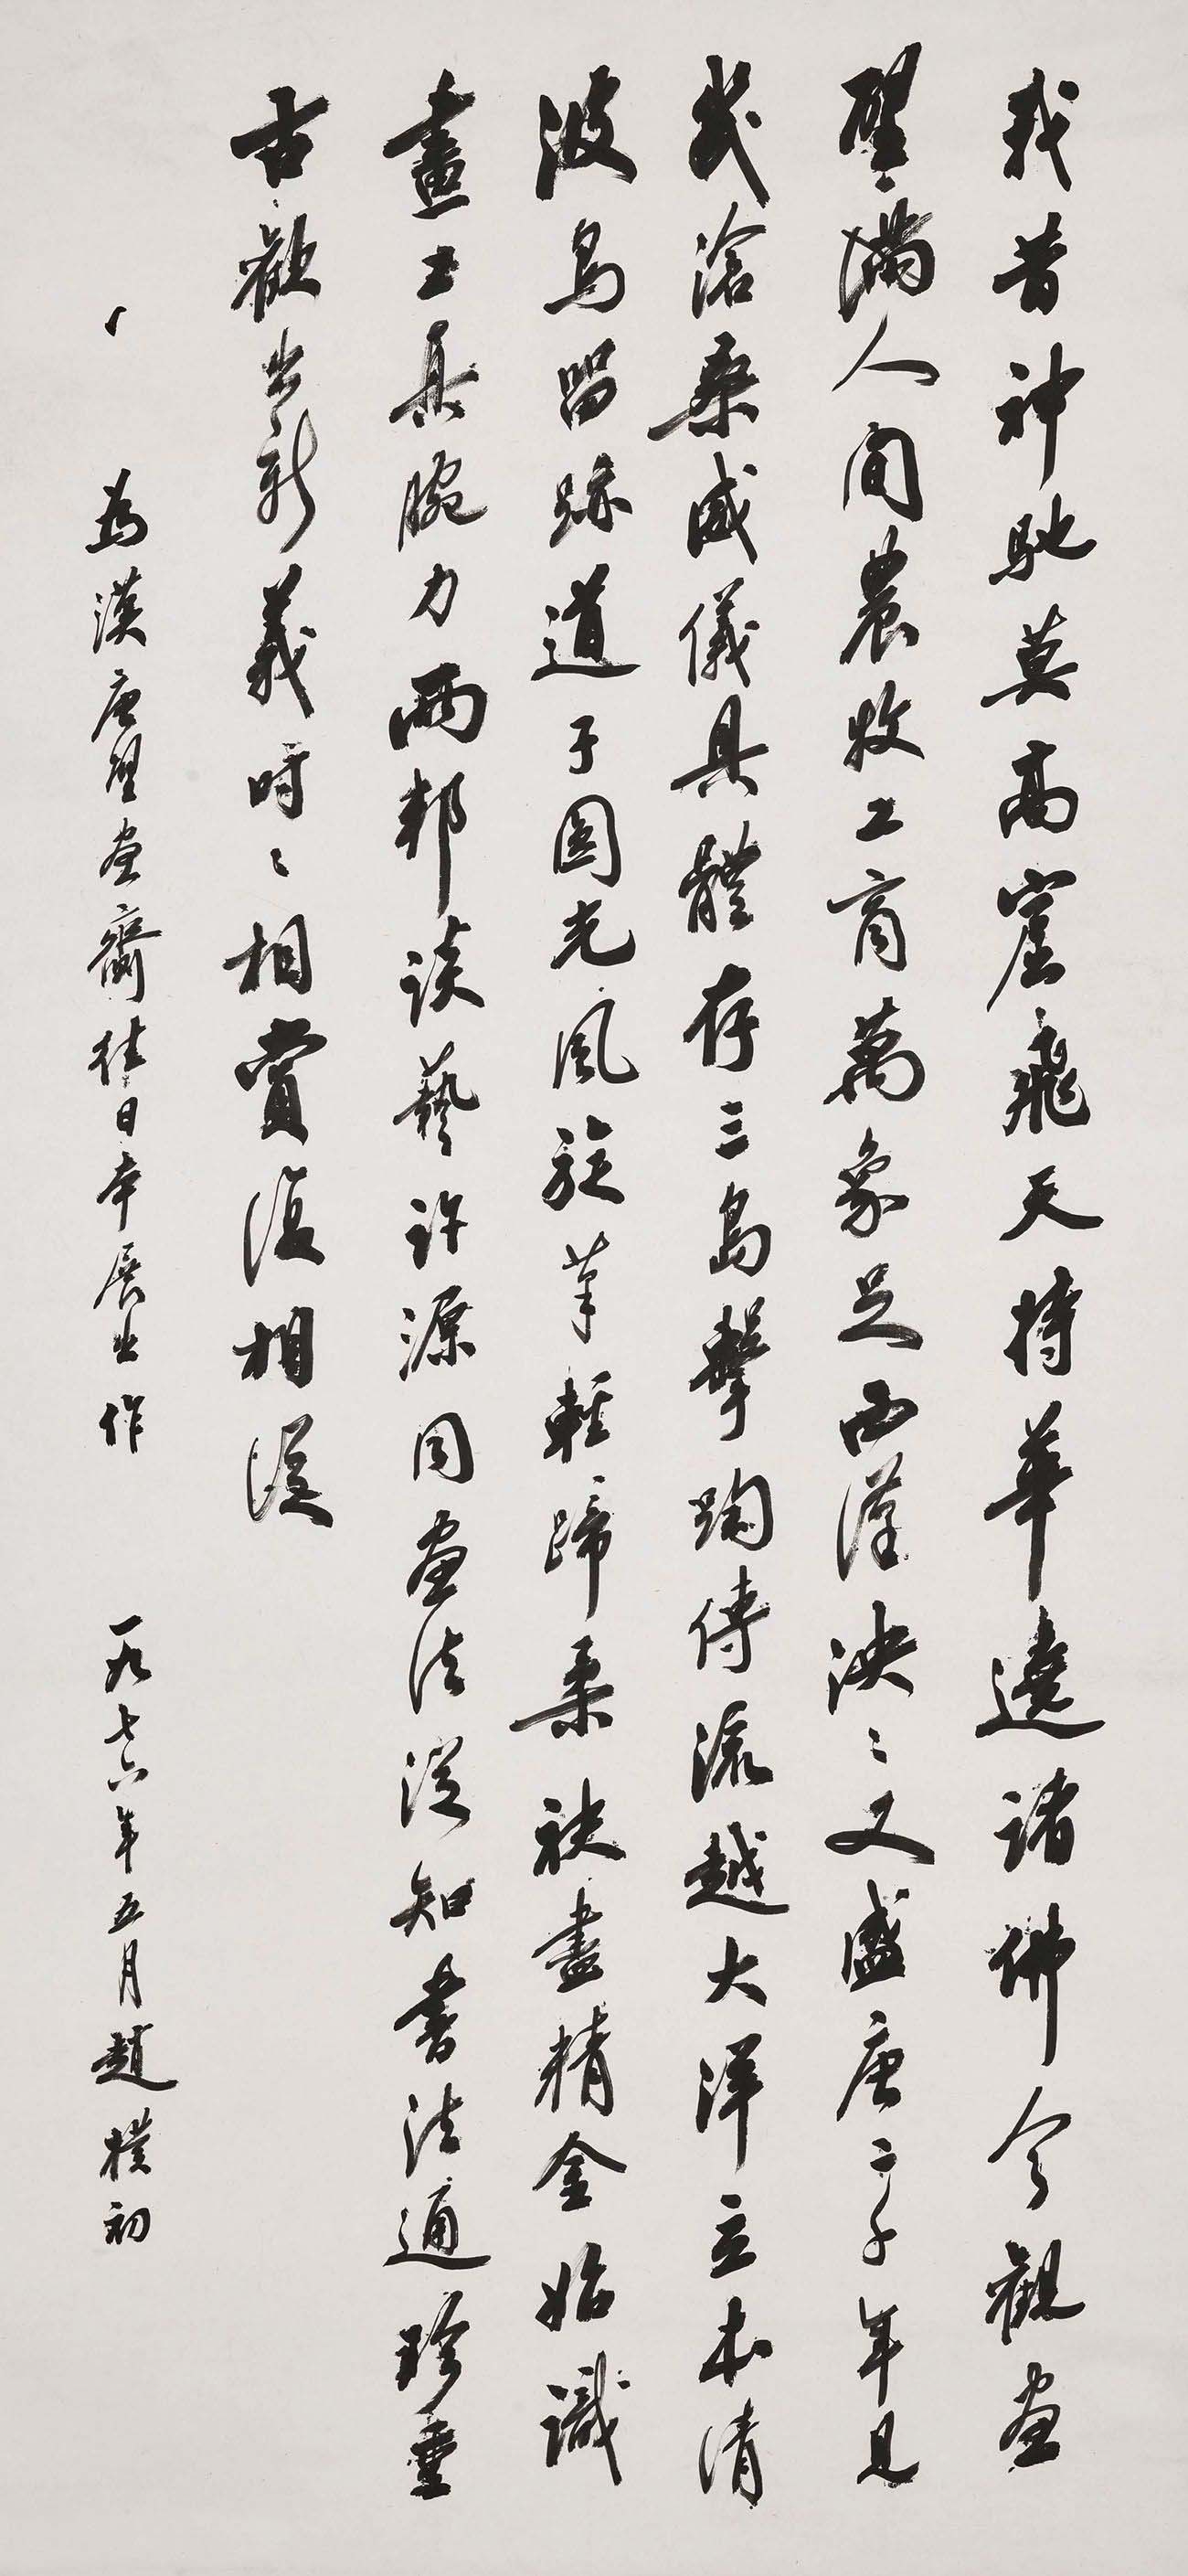 我昔神馳莫高窟飛天持華遶諸佛今觀畫
壁滿人間農牧工商萬象足西漢泱〻又盛唐二千年見
幾滄桑威儀具體存三島擊踘傳流越大洋立本清
波鳥留跡道子圓光風旋筆輕蹄柔袂盡精金始識
畫士真腕力兩邦談藝許源同畫法從知書法通珍重
古歡出新義時〻相賞復相從
為漢唐壁畫齎往日本展出作 一九七六年五月趙樸初